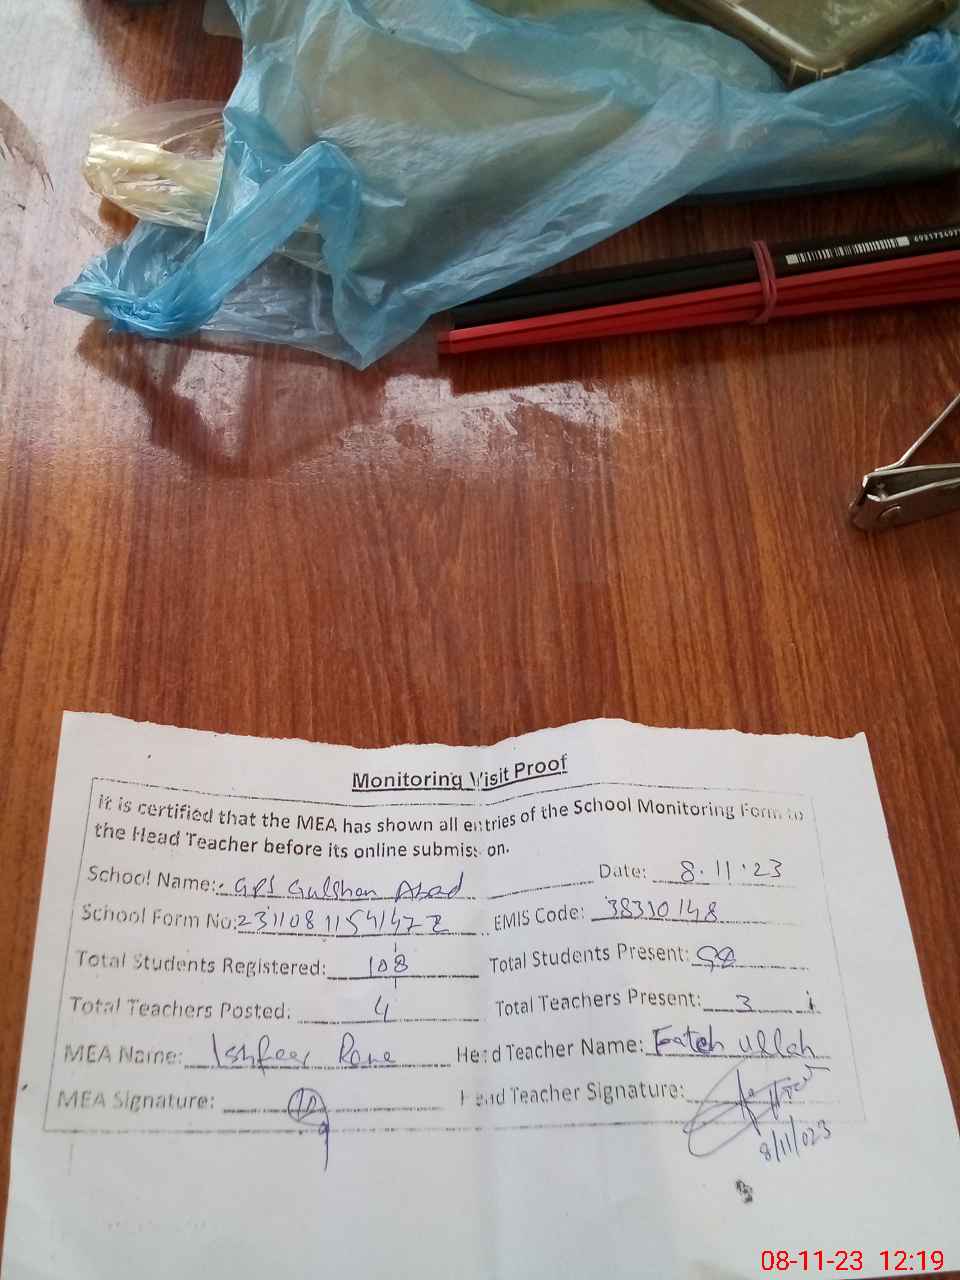 Monitoring Visit Proof
It is certified that the MEA has shown all entries of the School Monitoring Form to
the Head Teacher before its online submission.
School Name: GPS Gulshan Abad Date: 8.11.23
School Form No: EMIS Code: 38310148
Total Students Registered: 108 Total Students Present:
Total Teachers Posted: 4 Total Teachers Present: 3
MEA Name: Head Teacher Name: Fateh ullah
MEA Signature: Head Teacher Signature:
8/11/023
08-11-23 12:19